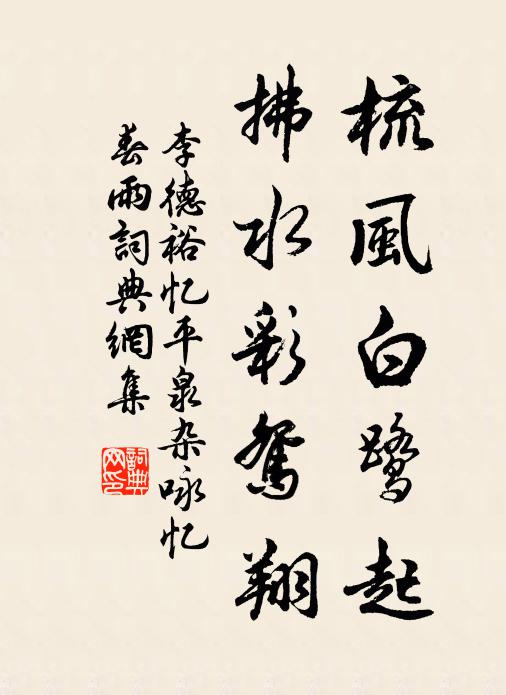 梳風白鷺起
拂水彩鴛翔
李德裕忆平泉杂咏忆
春雨詞典網集
詞典网印